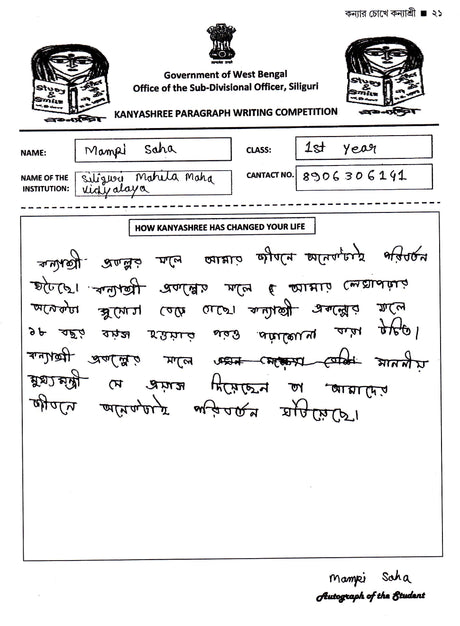 কন্যার চোখে কন্যাশ্রী ■ ২১
Government of West Bengal
Office of the Sub-Divisional Officer, Siliguri
KANYASHREE PARAGRAPH WRITING COMPETITION
Study & Smile
Study & Smile
NAME: Mampi Saha
CLASS: 1st Year
NAME OF THE INSTITUTION: Siliguri Mahila Maha Vidyalaya
CANTACT NO. 8906306141
HOW KANYASHREE HAS CHANGED YOUR LIFE
কন্যাশ্রী প্রকল্পের ফলে আমার জীবনে অনেকটাই পরিবর্তন
ঘটেছে। কন্যাশ্রী প্রকল্পের ফলে আমার লেখাপড়ার
অনেকটা সুযোগ বেড়ে গেছে। কন্যাশ্রী প্রকল্পের ফলে
১৮ বছর বয়স হওয়ার পরও পড়াশোনা করা উচিত।
কন্যাশ্রী প্রকল্পের ফলে মাননীয়
মুখ্যমন্ত্রী যে প্রয়াস দিয়েছেন তা আমাদের
জীবনে অনেকটাই পরিবর্তন ঘটিয়েছে।
Mampi Saha
Autograph of the Student